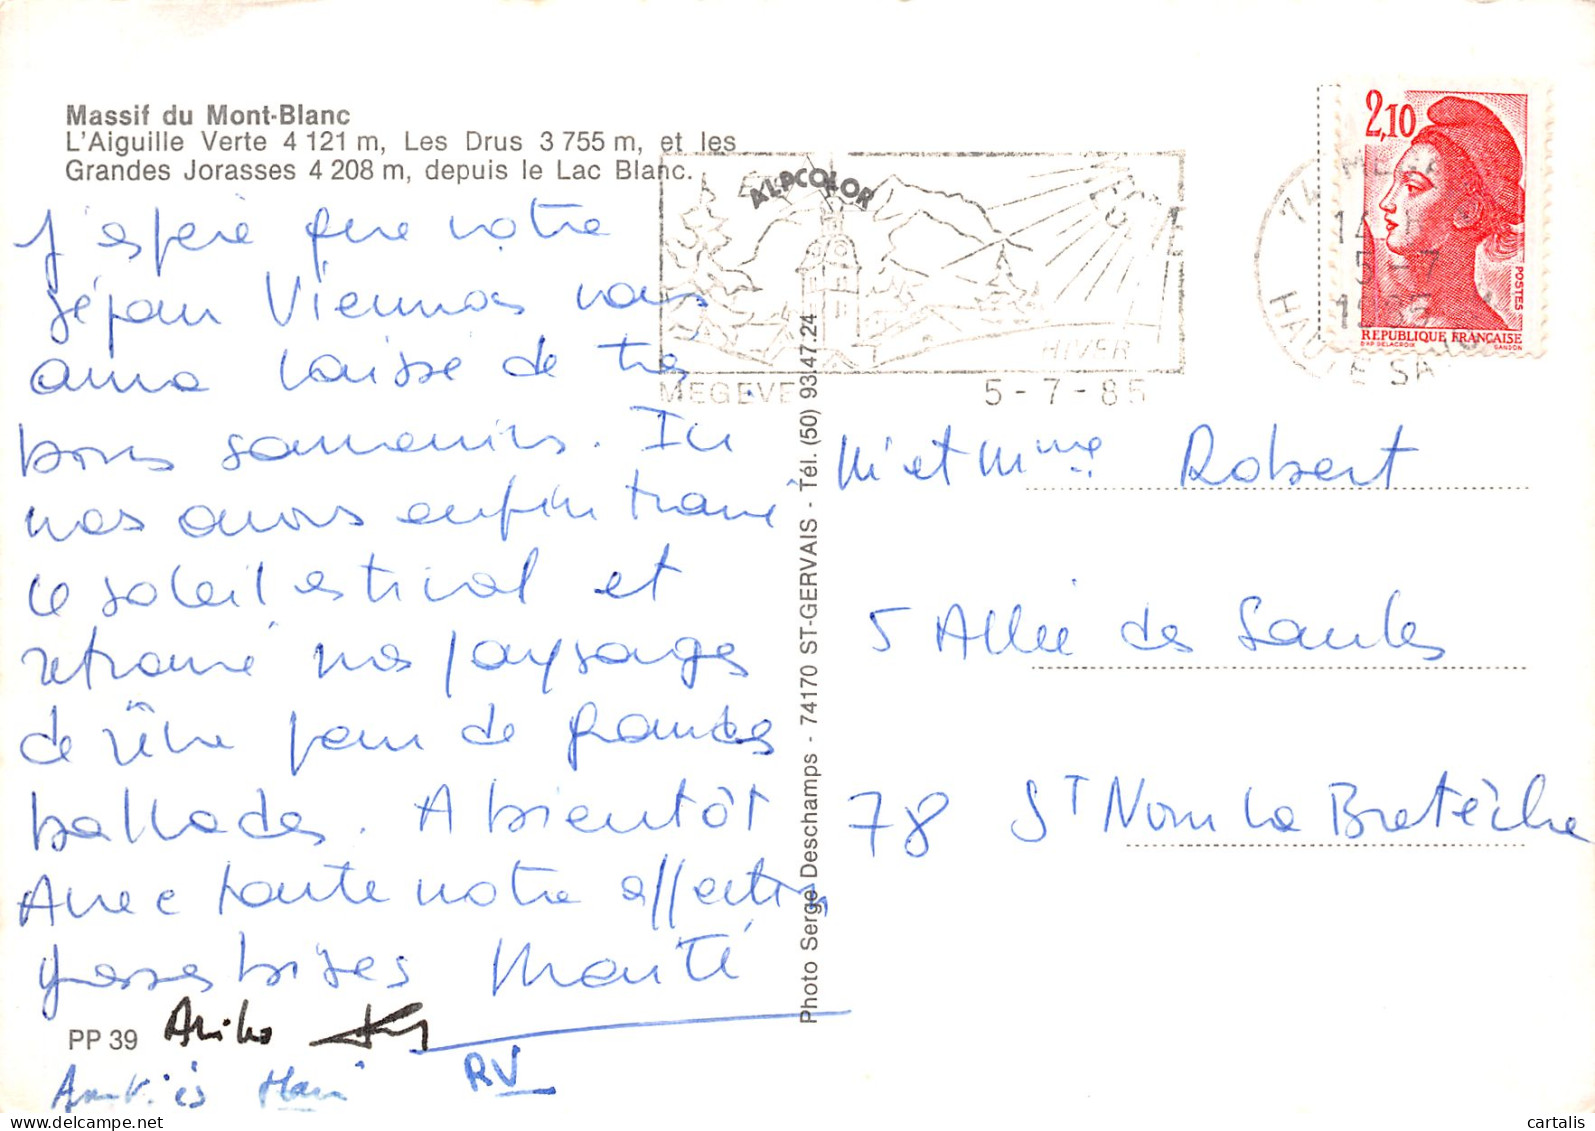 Massif du Mont-Blanc
L'Aiguille Verte 4 121 m, Les Drus 3 755 m, et les
Grandes Jorasses 4 208 m, depuis le Lac Blanc.
J'espère que notre
séjour Viennois vous
aura laissé de très
bons souvenirs. Ici
nous avons enfin trouvé
le soleil estival et
retrouvé nos paysages
de rêve pour de grandes
ballades. A bientôt
Avec toute notre affection
grosses bises Maïté
PP 39 Aniko
RV
Amitiés
ALPCOLOR
ETE
HIVER
MEGEVE 5-7-85
Photo Serge Deschamps - 74170 ST-GERVAIS - Tél. (50) 93.47.24
2,10
POSTES
REPUBLIQUE FRANÇAISE
D'AP. DELACROIX GANDON
74 MEGEVE
5-7
1985
HAUTE SAVOIE
M et Mme Robert
5 Allée des Saules
78 St Nom la Bretèche
delcampe.net
cartalis